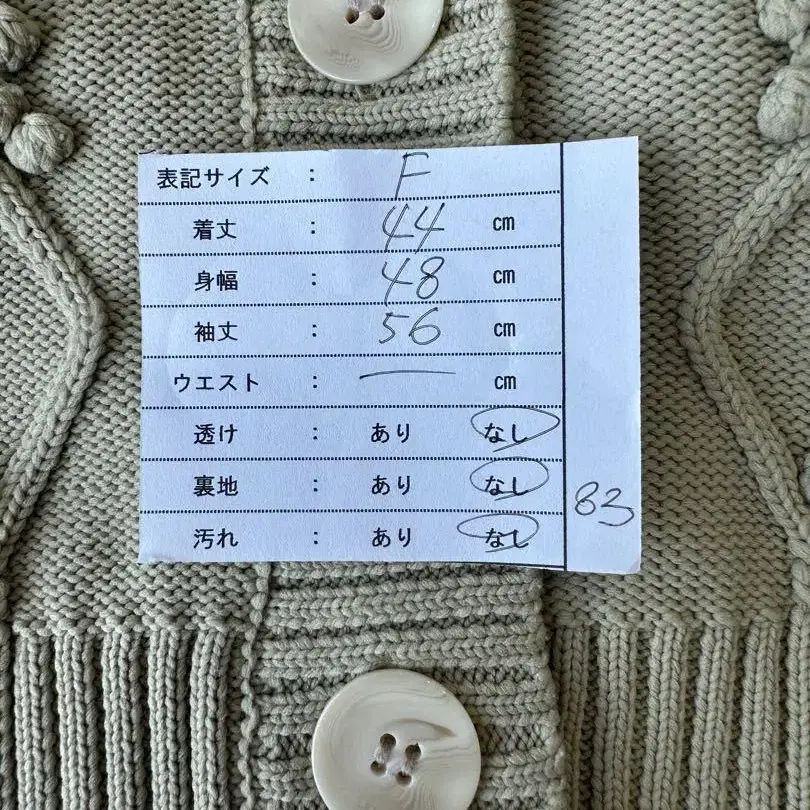 表記サイズ : F
着丈 : 44 cm
身幅 : 48 cm
袖丈 : 56 cm
ウエスト : — cm
透け : あり なし
裏地 : あり なし
汚れ : あり なし
83